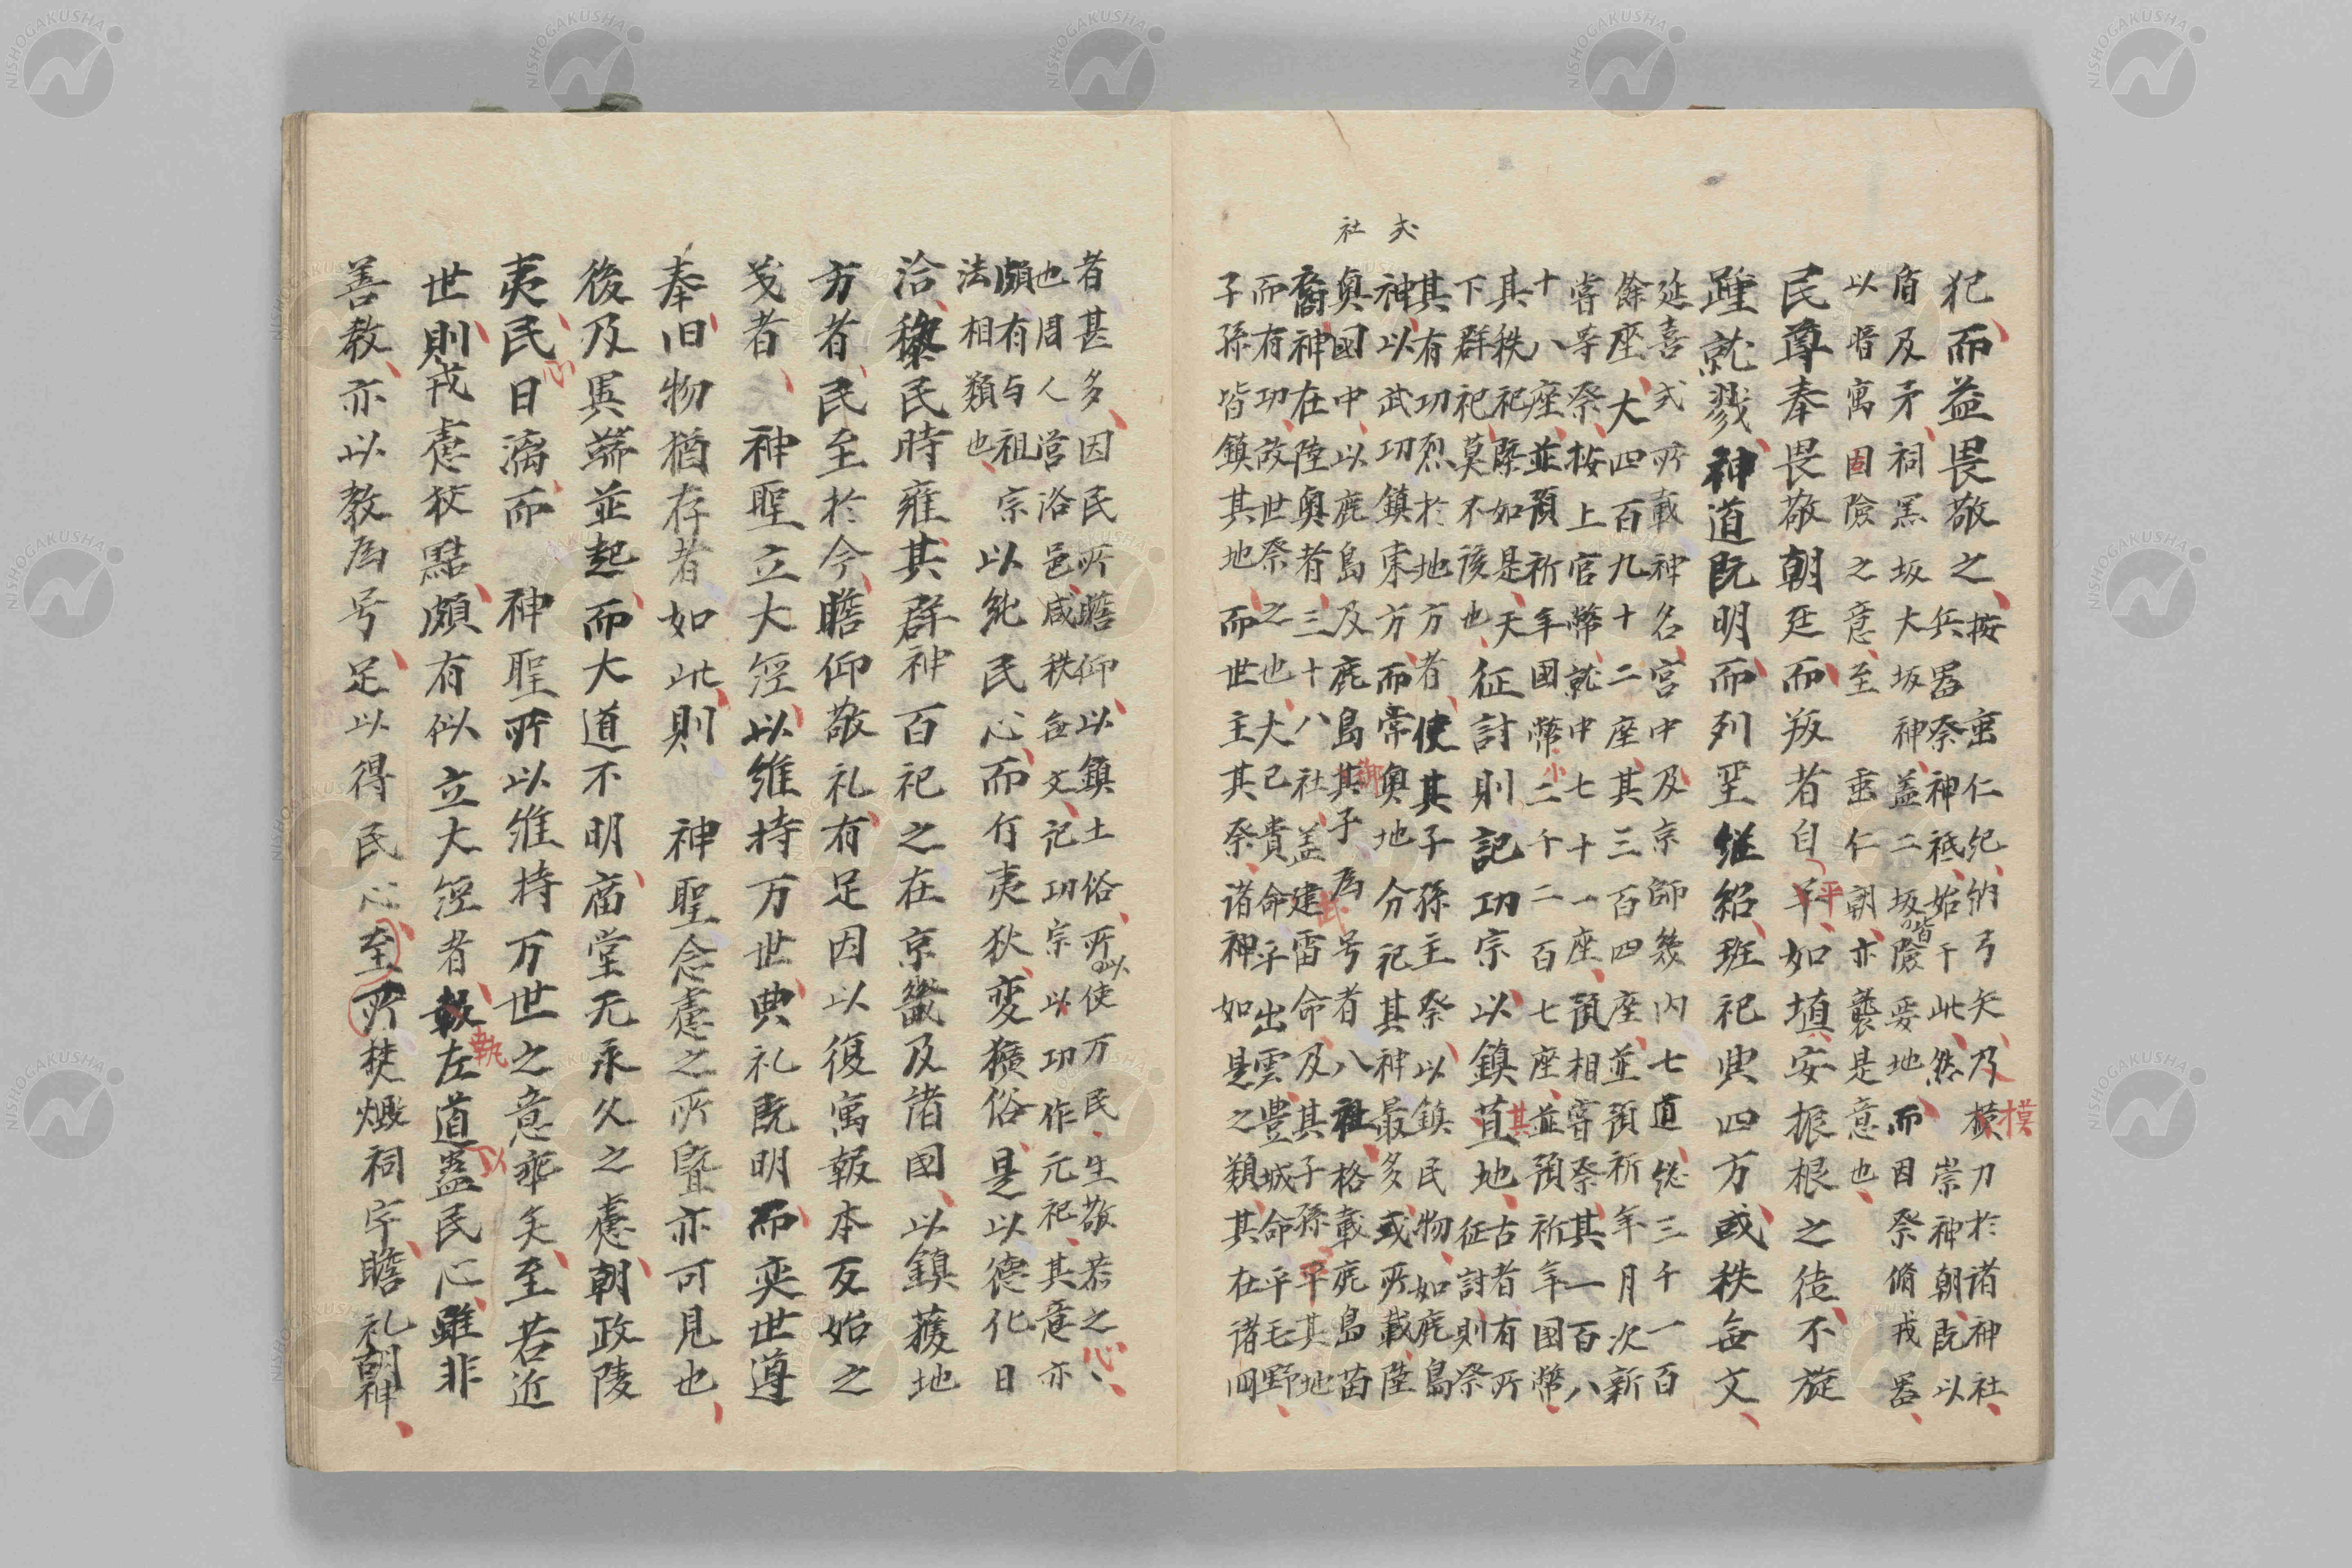 社 式
犯而益畏敬之、按垂仁紀納弓矢乃横刀於諸神社、
模
兵器祭神祇始于此然崇神朝既以
盾及矛祠黒坂大坂神盖二坂皆險要地而因祭脩戎器
以寓固險之意至垂仁朝亦襲是意也
民尊奉畏敬朝廷而叛者自平如填安振根之徒不旋
踵就戮神道既明而列聖継紹班祀典四方或秩無文
延喜式所載神名宮中及京師幾内七道総三千一百
餘座大四百九十二座其三百四座並預祈年月次新
嘗等祭按上官幣就中七十一座預相嘗祭其一百八
十八座並預祈年國幣小二千二百七座並預祈年國幣
其秩祀槩如是天
下群祀莫不該也
征討則記功宗以鎮其地
古者有所
征討則祭
其有功烈於地方者使其子孫主祭以鎮民物如鹿島
神以武功鎮東方而常奥地分祀其神最多或所載陸
奥國中以鹿島及鹿島御子為号者八社格載鹿島苗
裔神在陸奥者三十八社盖建武雷命及其子孫平其地
而有功故世祭之也大己貴命子出雲豊城命平毛野
子孫皆鎮其地而世主其祭諸神如是之類其在諸国
者甚多因民所瞻仰以鎮土俗所以使万民生敬恭之心
也周人営洛邑咸秩無文記功宗以功作元祀其意亦
頗有与祖
法相類也
宗以純民心而行夷狄変獷俗是以徳化日
洽黎民時雍其群神百祀之在京畿及諸國以鎮護地
方者民至於今瞻仰敬礼有足因以復寓報本反始之
義者神聖立大経以維持万世典礼既明而奕世遵
奉旧物猶存者如此則神聖念慮之所曁亦可見也
後及異端並起而大道不明廟堂无永久之慮朝政陵
夷民心日漓而神聖所以維持万世之意乖矣至若近
世則戎慮狡黠頗有似立大経者執左道以蠱民心雖非
善教亦以教為号足以得民心至所焚燬祠宇瞻礼朝神